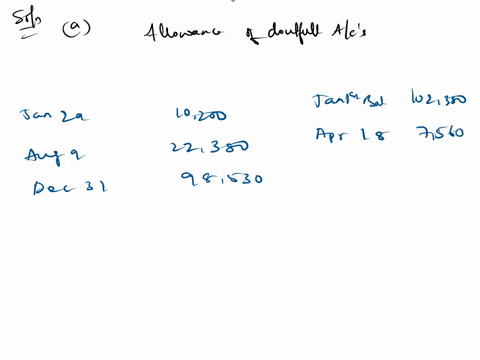 Soln (a) Allowance of doutfull A/c's
Jan 29 10,200 Jan 1st Bal 102,300
Apr 18 7,560
Aug 9 22,380
Dec 31 98,530